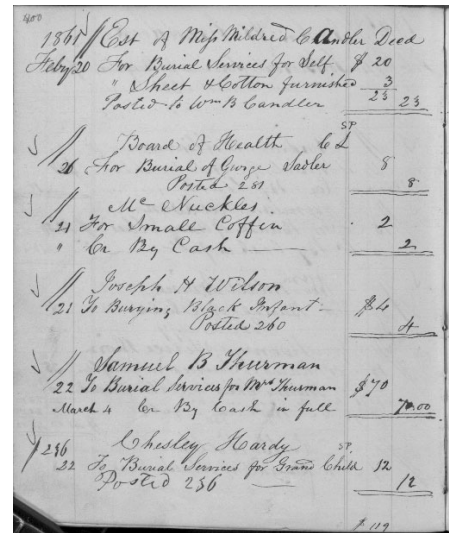 1865 Est of Miss Mildred C Candler Deced
Feby 20 For Burial Services for Self $ 20
" Sheet & Cotton furnished 3
Posted to Wm B Candler 23 23
SP
Board of Health C L
20 For Burial of George Sadler 8
Posted 281 8
Mc Nuckles
21 For Small Coffin 2
" Cr By Cash 2
Joseph H Wilson
21 To Burying Black Infant $4
Posted 260 4
Samuel B Thurman
22 To Burial Services for Mrs Thurman $70
March 4 Cr By Cash in full 70.00
Chesley Hardy SP
256
22 To Burial Services for Grand Child 12
Posted 256 12
$ 119